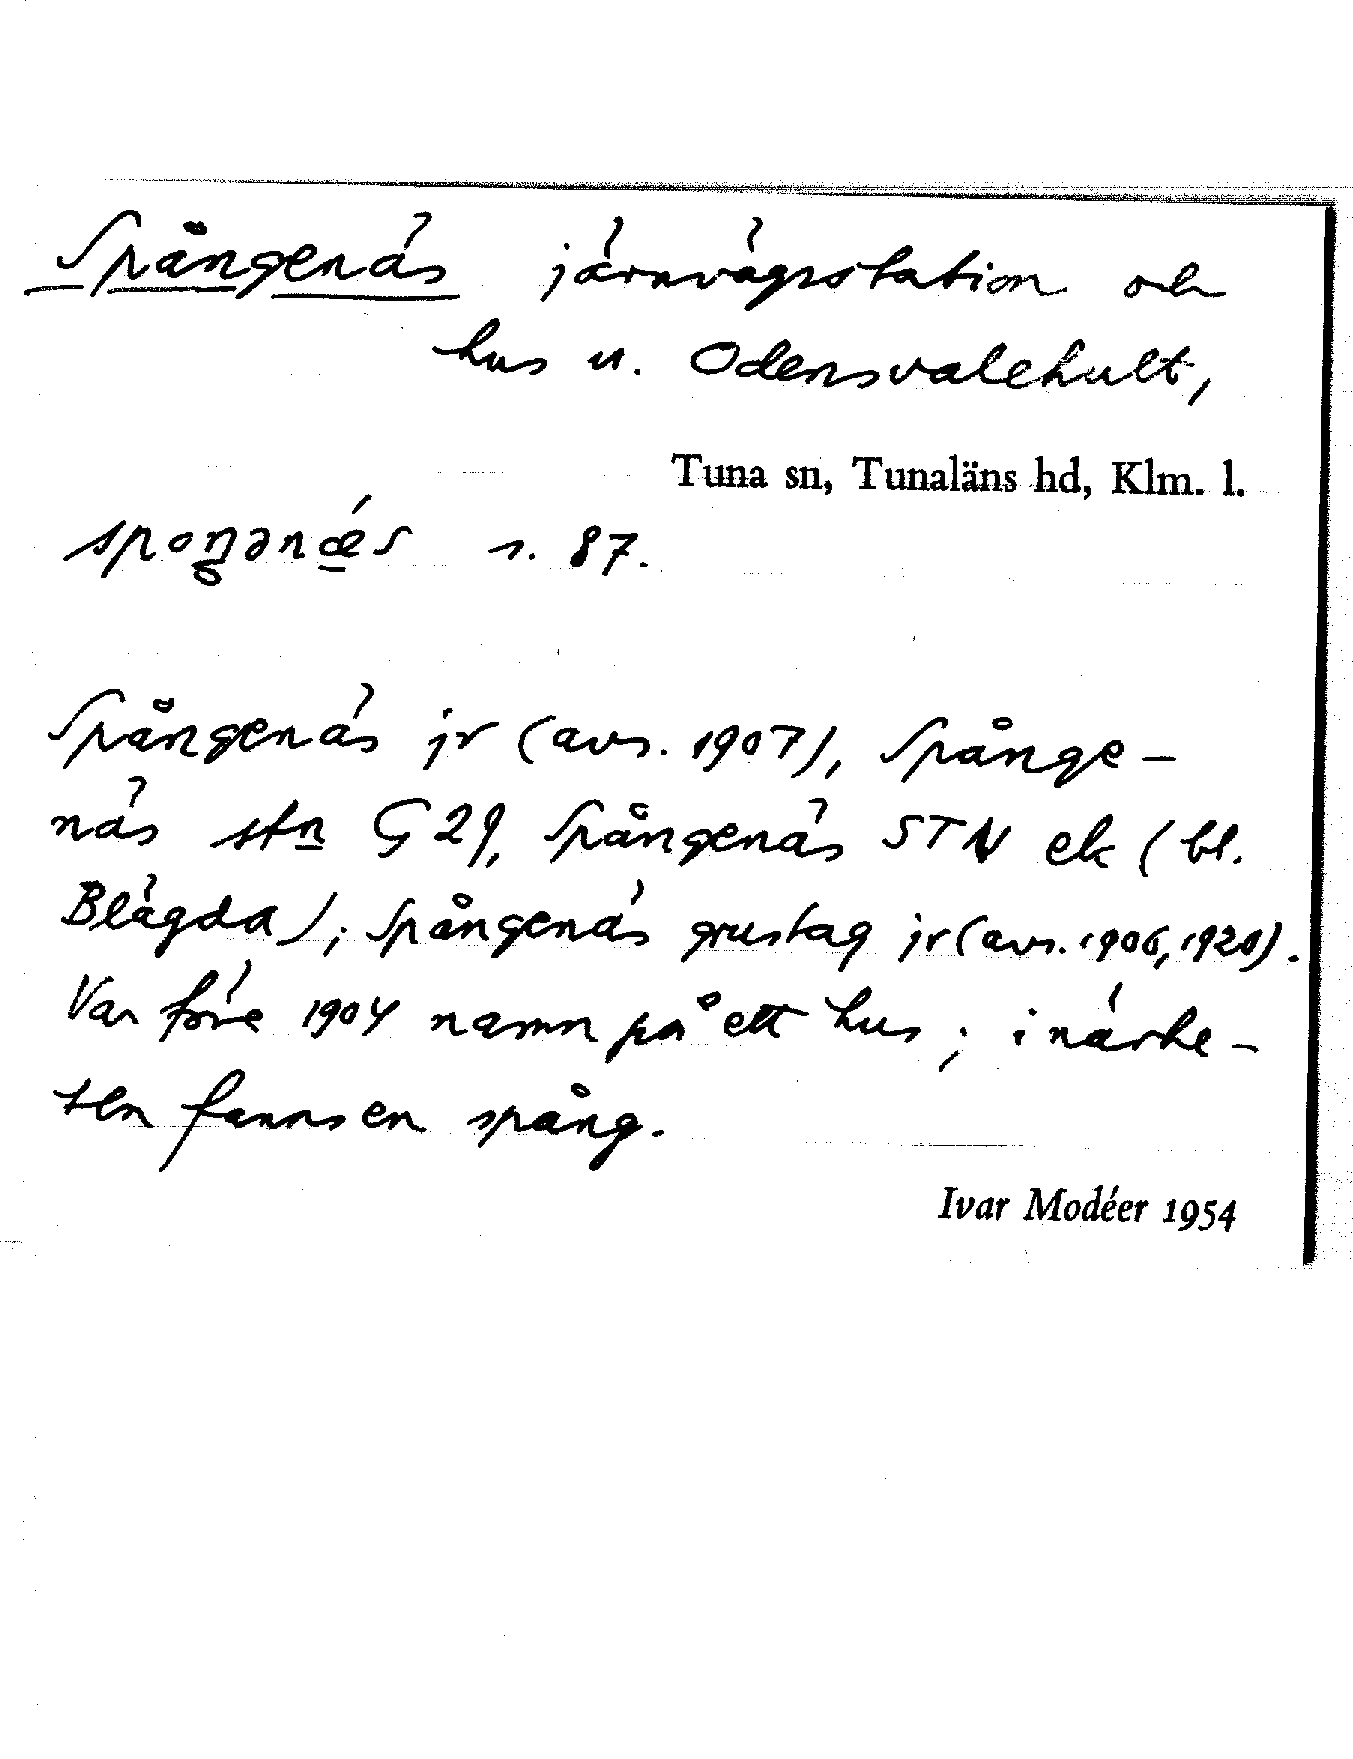 Spångenäs järnvägsstation och
hus u. Odensvalehult,
Tuna sn, Tunaläns hd, Klm. l.
s. 87.
Spångenäs jr (avs. 1907), Spånge-
näs stn G 29, Spångenäs STN ek (bl.
Blägda); Spångenäs grustag jr (avs. 1906, 1920).
Var före 1904 namn på ett hus; i närhe-
ten fanns en spång.
Ivar Modéer 1954